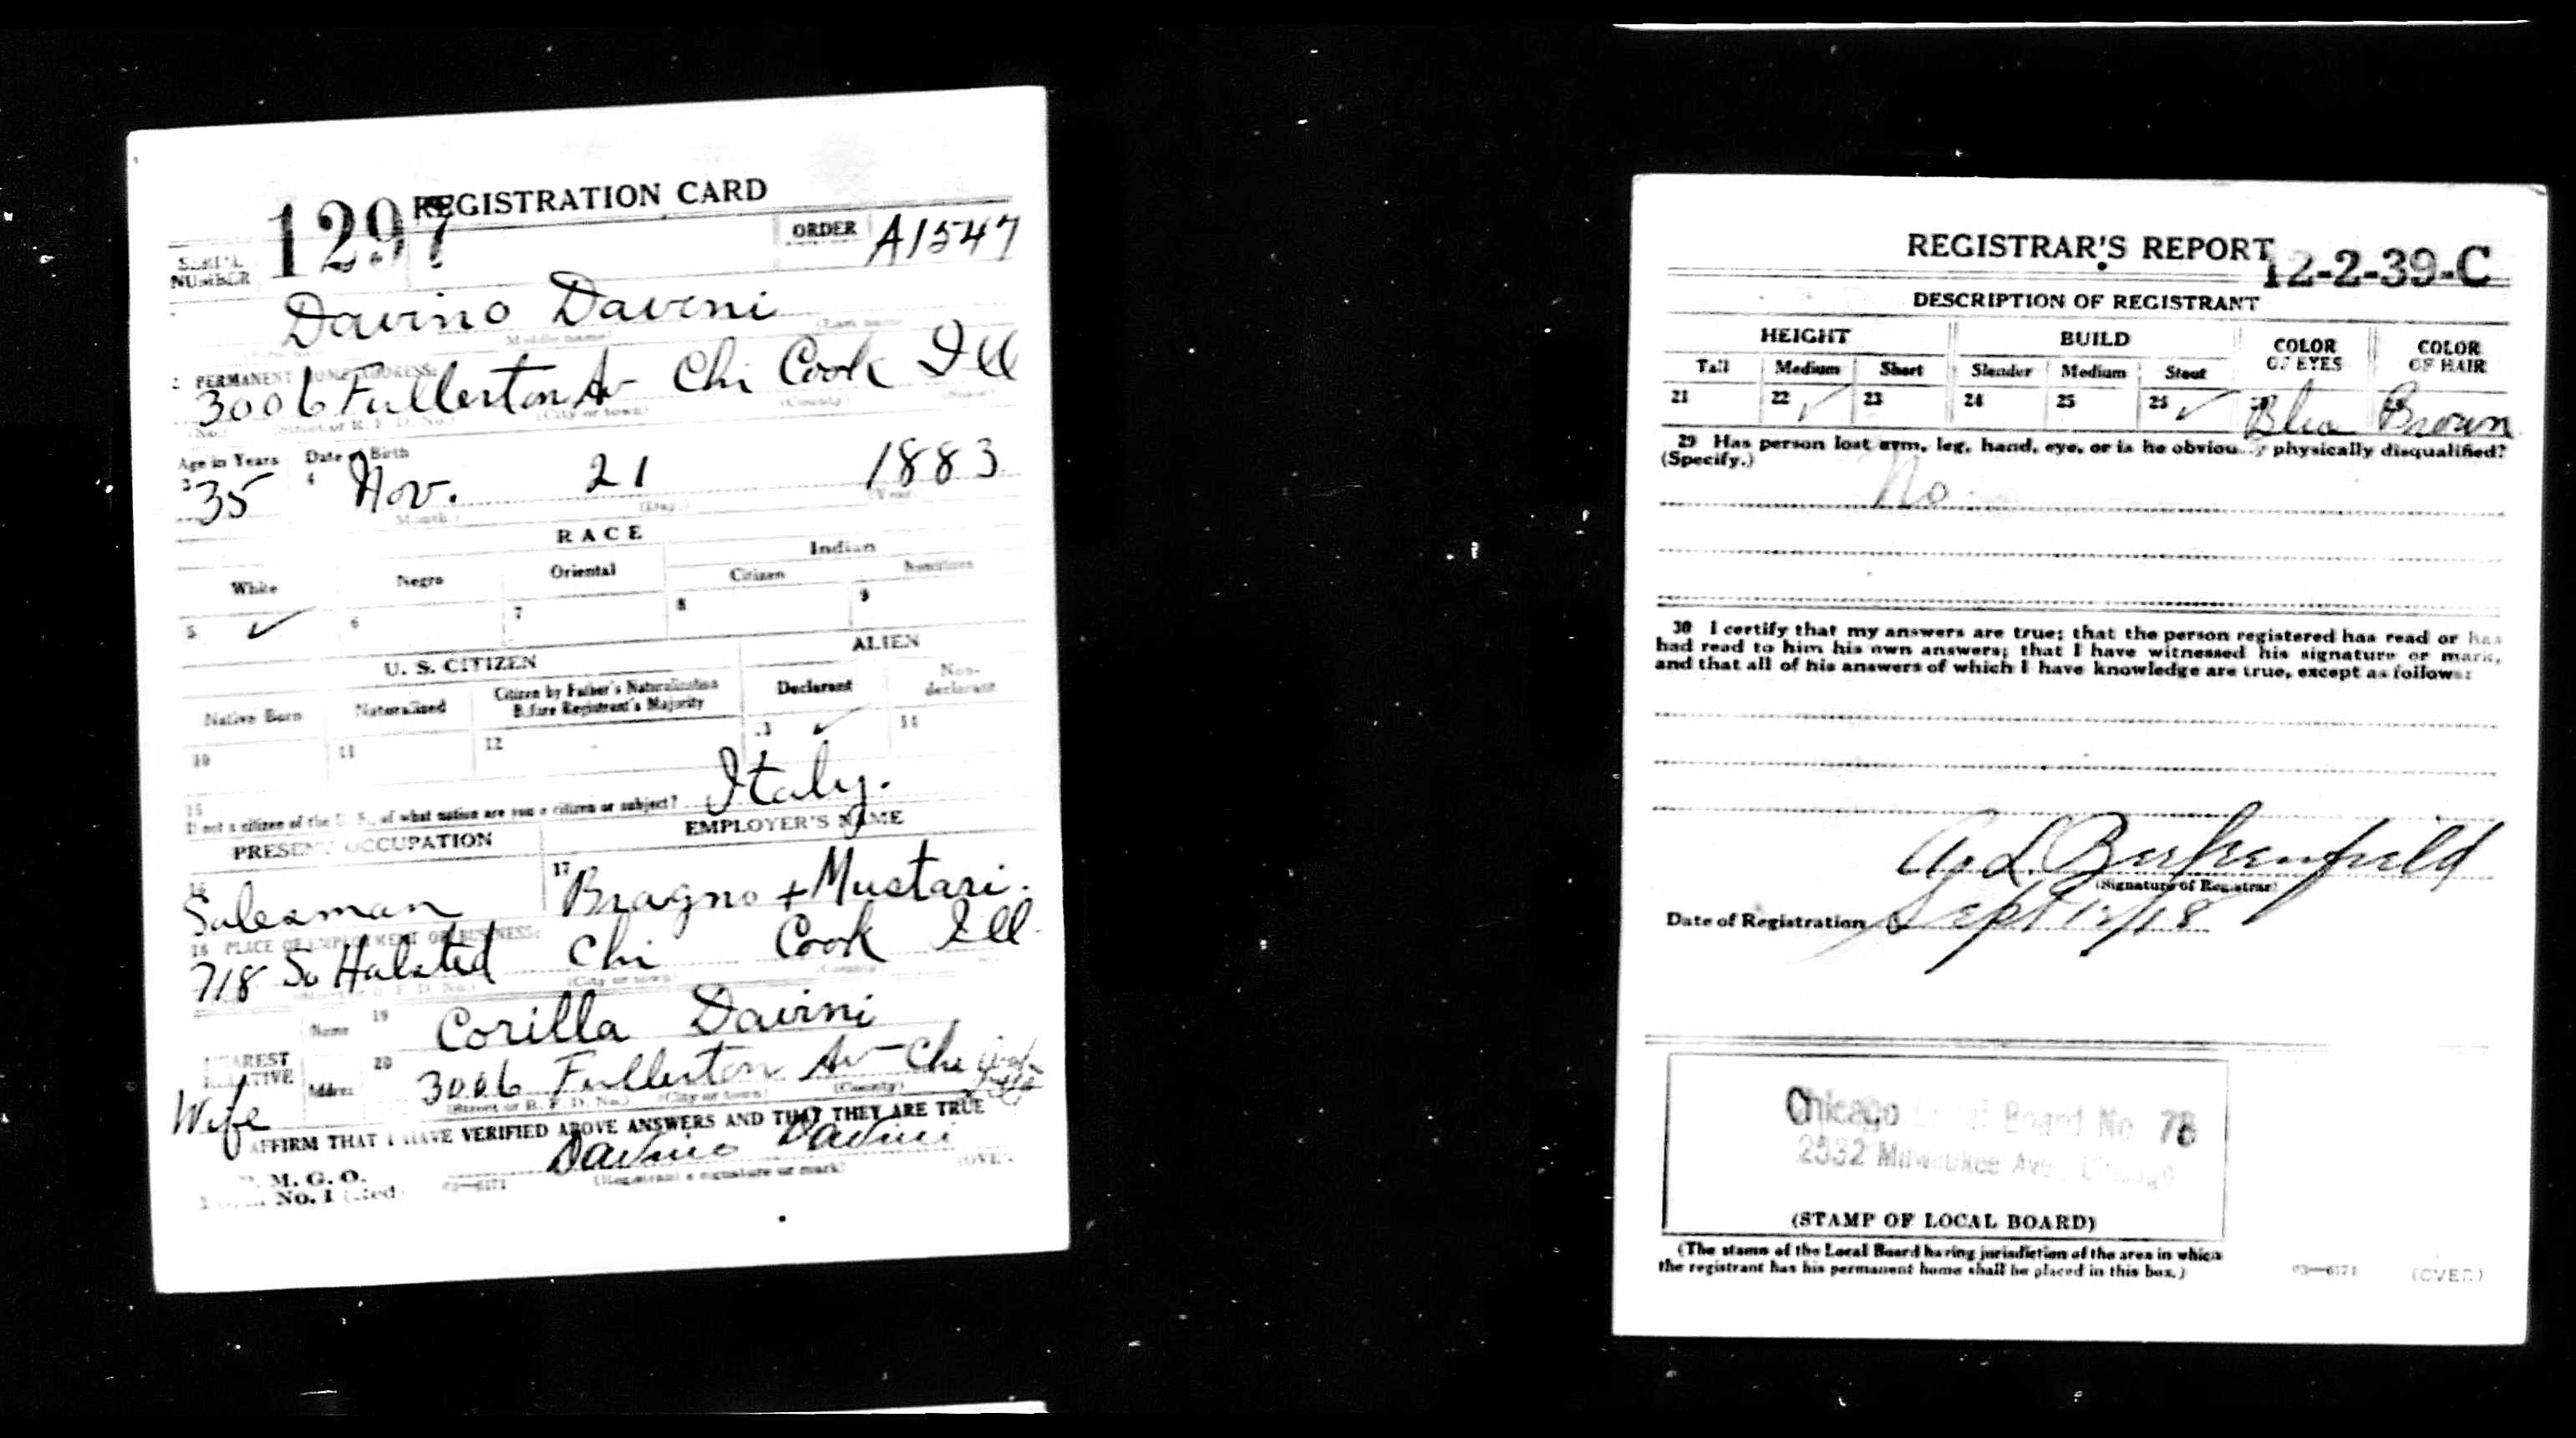 REGISTRATION CARD
SERIAL NUMBER 1297 ORDER A1547
Davino Davini
2 PERMANENT HOME ADDRESS:
3006 Fullerton Av Chi Cook Ill
(No.) (Street or R. F. D. No.) (City or town) (County) (State)
Age in Years Date of Birth
3 35 4 Nov. 21 1883
(Month.) (Day.) (Year
RACE
White Negro Oriental Indian
Citizen Noncitizen
5 ✓ 6 7 8 9
U. S. CITIZEN ALIEN
Native Born Naturalized Citizen by Father's Naturalization Before Registrant's Majority Declarant Non-declarant
10 11 12 13 ✓ 14
15 If not a citizen of the U. S., of what nation are you a citizen or subject? Italy.
PRESENT OCCUPATION EMPLOYER'S NAME
16 Salesman 17 Bragno + Mustari.
18 PLACE OF EMPLOYMENT OR BUSINESS:
718 So Halsted Chi Cook Ill.
(City or town) (County)
NEAREST RELATIVE Name 19 Corilla Davini
Wife Address 20 3006 Fullerton Av Chi
(Street or R. F. D. No.) (City or town) (County)
AFFIRM THAT I HAVE VERIFIED ABOVE ANSWERS AND THAT THEY ARE TRUE
Davino Davini
P. M. G. O.
No. 1 (Red) 03—6171 (Registrant's signature or mark) (OVER
REGISTRAR'S REPORT 12-2-39-C
DESCRIPTION OF REGISTRANT
HEIGHT BUILD COLOR OF EYES COLOR OF HAIR
Tall Medium Short Slender Medium Stout
21 22 ✓ 23 24 25 26 ✓ Blue Brown
29 Has person lost arm, leg, hand, eye, or is he obviously physically disqualified?
(Specify.)
No.
30 I certify that my answers are true; that the person registered has read or has
had read to him his own answers; that I have witnessed his signature or mark,
and that all of his answers of which I have knowledge are true, except as follows:
Birkenfield
(Signature of Registrar)
Date of Registration Sept 12/18
Chicago Local Board No. 78
2332 Milwaukee Ave., Chicago
(STAMP OF LOCAL BOARD)
(The stamp of the Local Board having jurisdiction of the area in which
the registrant has his permanent home shall be placed in this box.)
03—6171 (OVER)